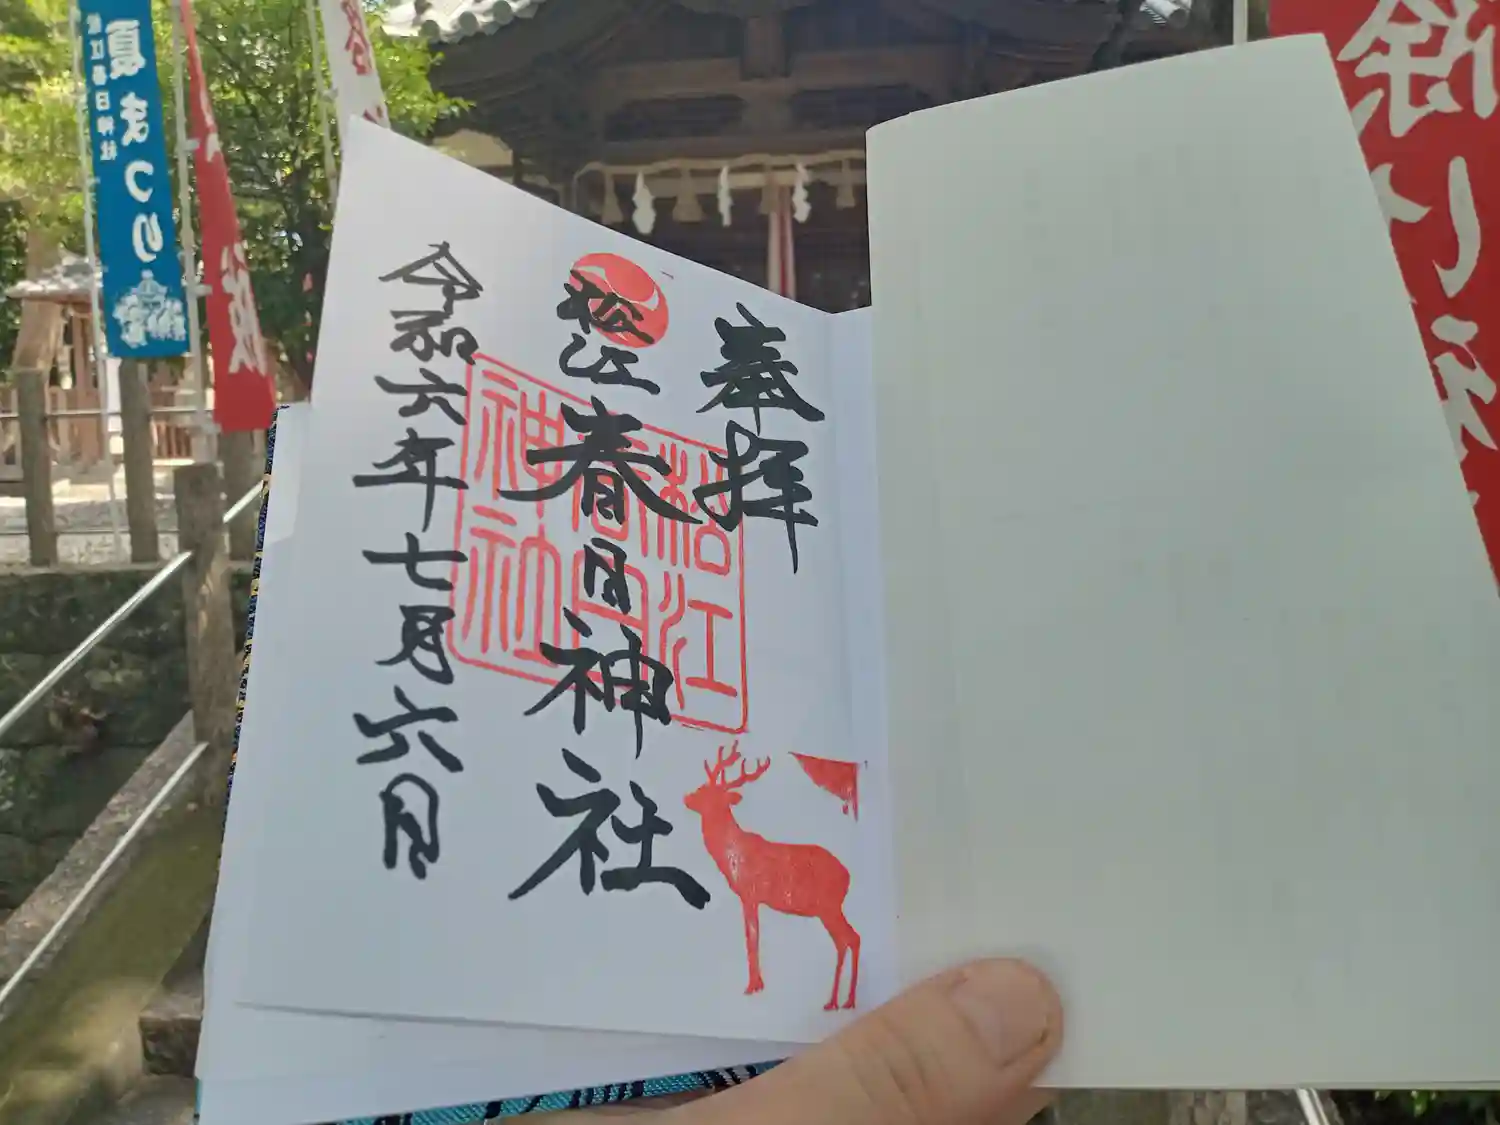 奉拝
松江
春日神社
令和六年七月六日
松江
春日
神社
夏まつり
松江春日神社